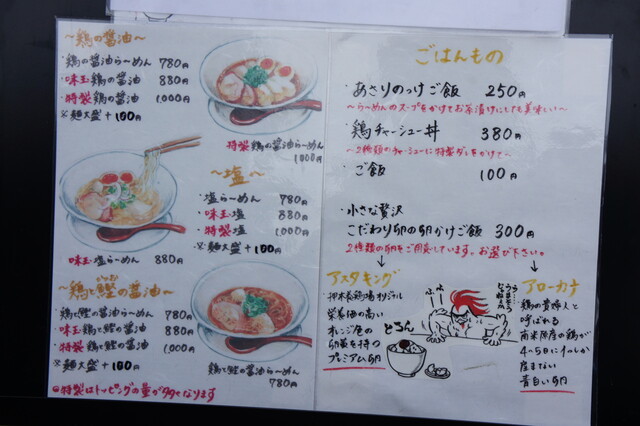 ～鶏の醤油～
・鶏の醤油ら～めん 780円
・味玉鶏の醤油 880円
・特製鶏の醤油 1,000円
※麺大盛+100円
特製鶏の醤油ら～めん
1,000円
～塩～
・塩ら～めん 780円
・味玉塩 880円
・特製塩 1,000円
※麺大盛+100円
味玉塩ら～めん 880円
～鶏と鰹の醤油～
鶏と鰹の醤油ら～めん 780円
味玉鶏と鰹の醤油 880円
特製鶏と鰹の醤油 1,000円
※麺大盛+100円
鶏と鰹の醤油ら～めん
780円
特製はトッピングの量が多くなります
ごはんもの
・あさりのっけご飯 250円
～ら～めんのスープをかけてお茶漬けにしても美味しい～
・鶏チャーシュー丼 380円
～2種類のチャーシューに特製ダレをかけて～
・ご飯 100円
・小さな贅沢
こだわり卵の卵かけご飯 300円
2種類の卵をご用意しています。お選び下さい。
アスタキング
栄養価の高い
オレンジ色の
卵黄を持つ
プレミアム卵
ふふ
とろん
アローカナ
鶏の貴婦人と
呼ばれる
南米原産の鶏が
4～5日に1つしか
産まない
青白い卵